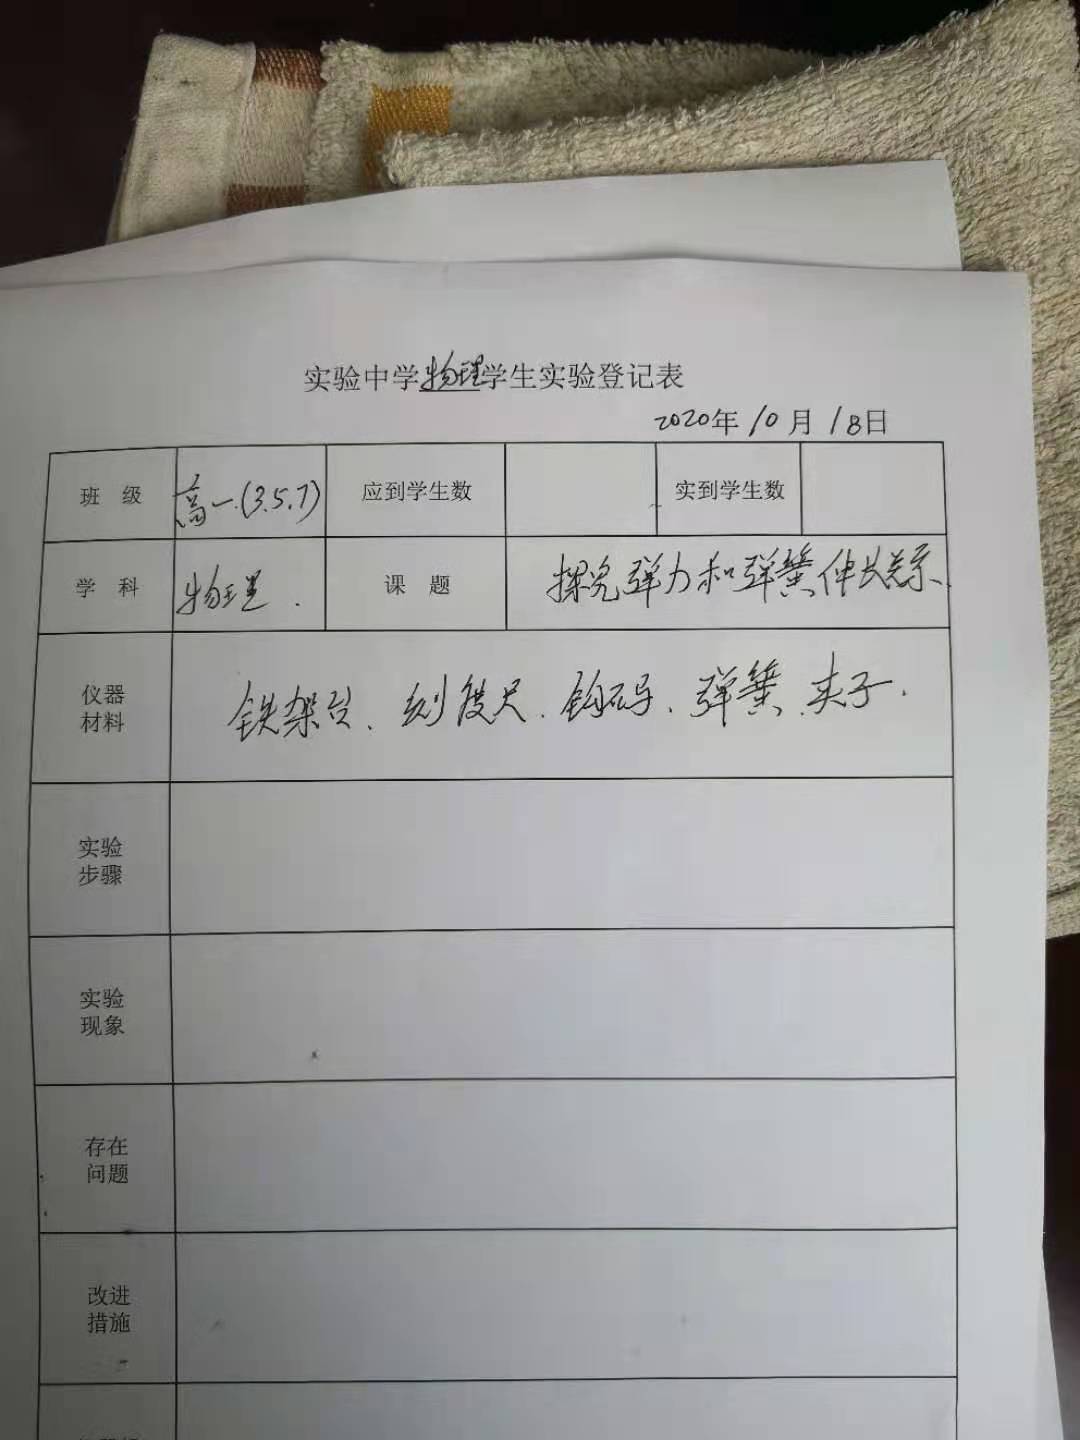 实验中学物理学生实验登记表
2020年10月18日
班 级 高一.(3.5.7) 应到学生数 实到学生数
学 科 物理. 课 题 探究弹力和弹簧伸长关系.
仪器
材料
铁架台、刻度尺、钩码、弹簧、夹子.
实验
步骤
实验
现象
存在
问题
改进
措施